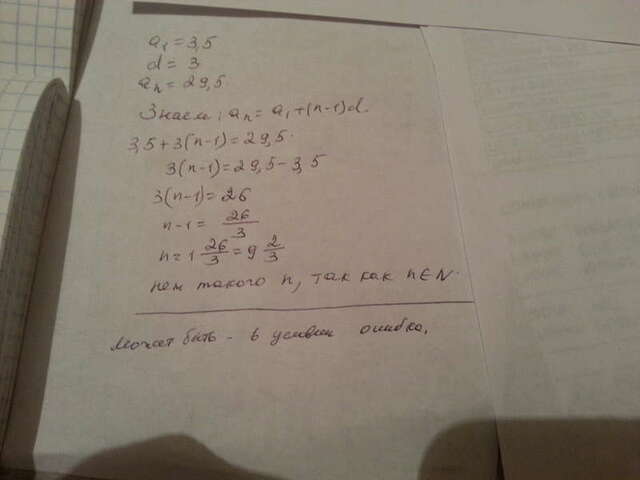 a₁ = 3,5
d = 3
aₙ = 29,5.
Знаем: aₙ = a₁+(n-1)d.
3,5+3(n-1)=29,5.
3(n-1)=29,5-3,5
3(n-1)=26
n-1= 26/3
n=1 26/3 = 9 2/3
нет такого n, так как n∈N.
Может быть - в условии ошибка.